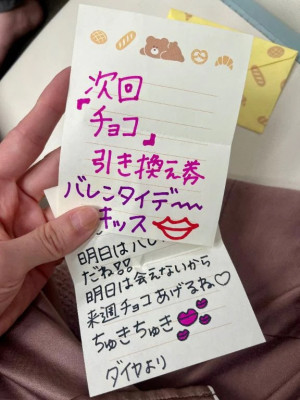 次回
『チョコ』
引き換え券
バレンタイデー〜
キッス
明日はバレ
だね
明日は会えないから
来週チョコあげるね♡
ちゅきちゅき
ダイヤより